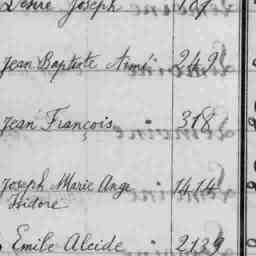 Désiré Joseph 187
Jean Baptiste Aimé 249
Jean François 318
Joseph Marie Ange 1414
Isidore
Emile Alcide 2139